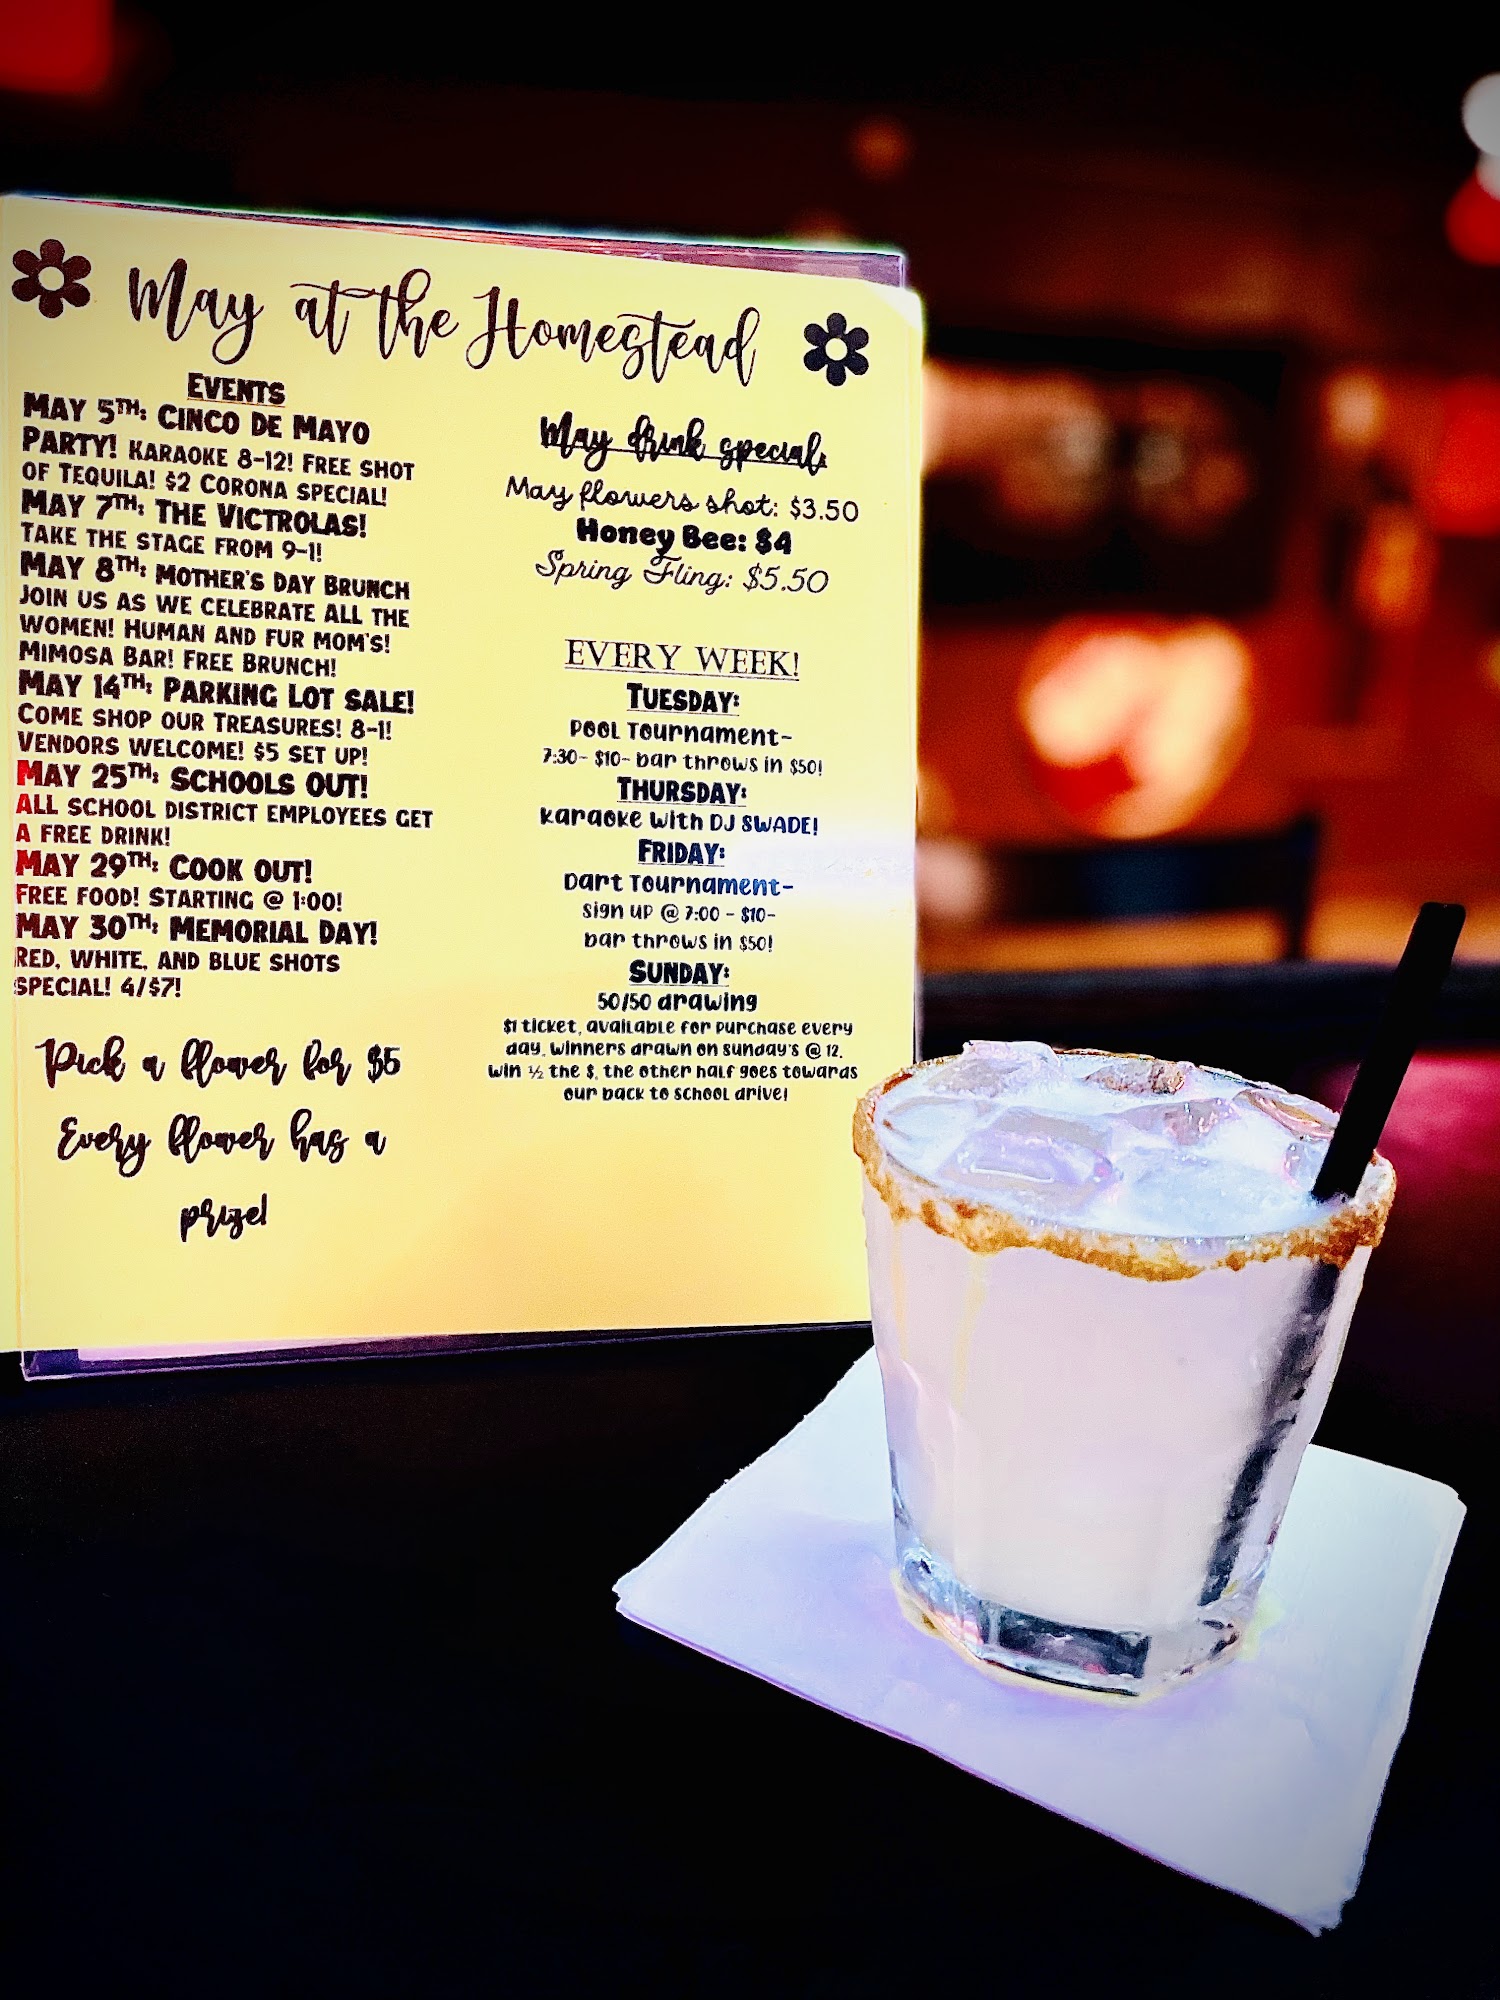 May at the Homestead
EVENTS
MAY 5TH: CINCO DE MAYO
PARTY! KARAOKE 8-12! FREE SHOT
OF TEQUILA! $2 CORONA SPECIAL!
MAY 7TH: THE VICTROLAS!
TAKE THE STAGE FROM 9-1!
MAY 8TH: MOTHER'S DAY BRUNCH
JOIN US AS WE CELEBRATE ALL THE
WOMEN! HUMAN AND FUR MOM'S!
MIMOSA BAR! FREE BRUNCH!
MAY 14TH: PARKING LOT SALE!
COME SHOP OUR TREASURES! 8-1!
VENDORS WELCOME! $5 SET UP!
MAY 25TH: SCHOOLS OUT!
ALL SCHOOL DISTRICT EMPLOYEES GET
A FREE DRINK!
MAY 29TH: COOK OUT!
FREE FOOD! STARTING @ 1:00!
MAY 30TH: MEMORIAL DAY!
RED, WHITE, AND BLUE SHOTS
SPECIAL! 4/$7!
Pick a flower for $5
Every flower has a
prize!
May drink specials
May flowers shot: $3.50
Honey Bee: $4
Spring Fling: $5.50
EVERY WEEK!
TUESDAY:
Pool Tournament-
7:30- $10- bar throws in $50!
THURSDAY:
Karaoke with DJ SWADE!
FRIDAY:
Dart Tournament-
Sign up @ 7:00 - $10-
bar throws in $50!
SUNDAY:
50/50 drawing
$1 ticket, available for purchase every
day, winners drawn on sunday's @ 12.
win ½ the $, the other half goes towards
our back to school drive!